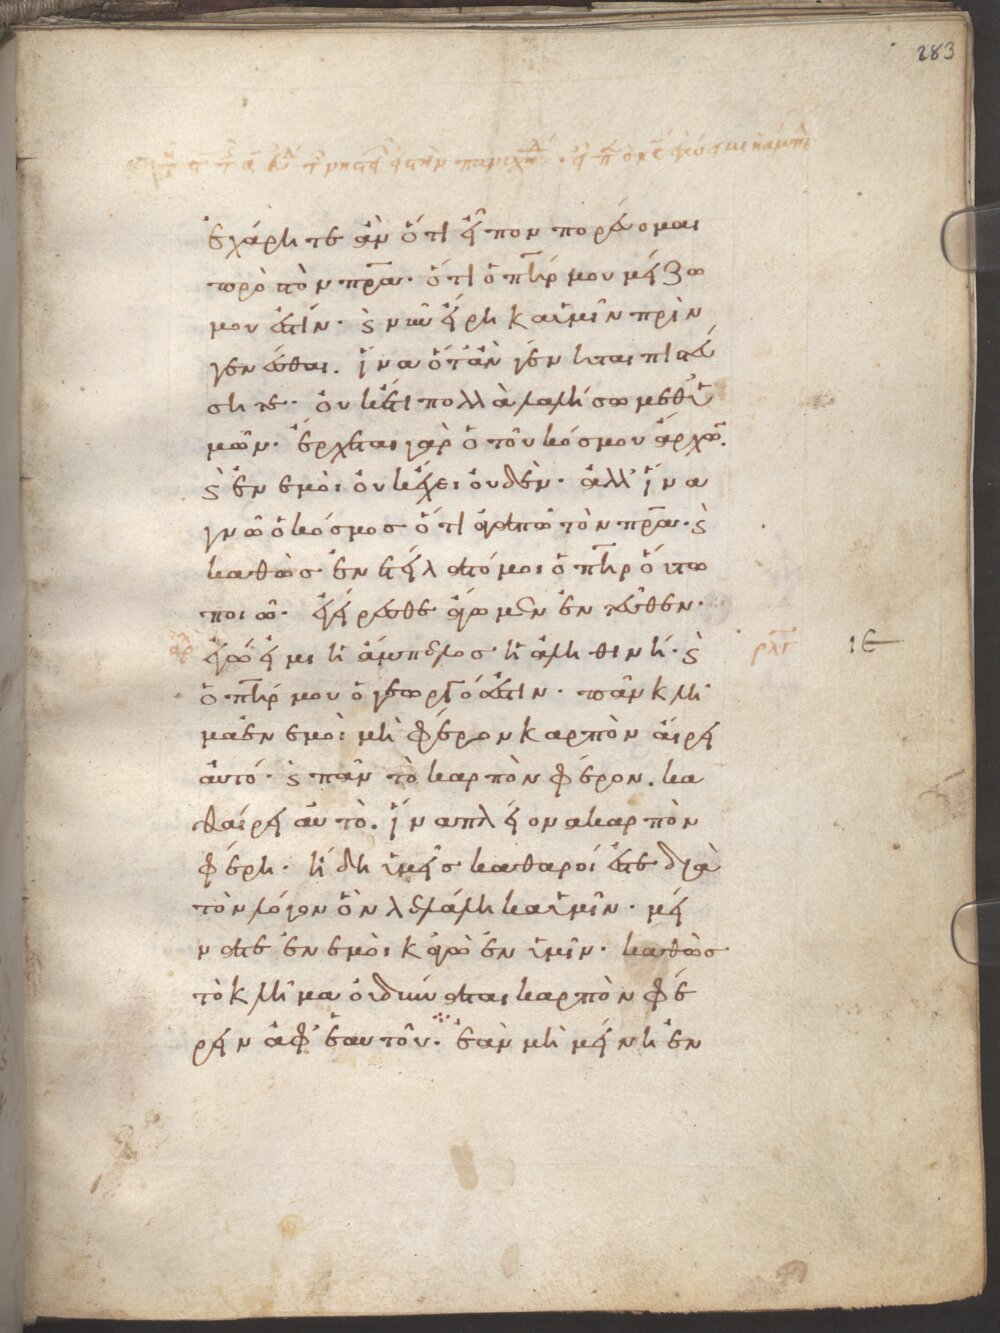 283
ἐχάρητε ἂν ὅτι εἶπον πορεύομαι
πρὸ τὸν πρα· ὅτι ὁ πηρ μου μείζω
μου ἐστίν· ϛ νῦν εἴρηκα ὑμῖν πρὶν
γενέσθαι. ἵνα ὅταν γένηται πιστεύ
σητε· οὐκέτι πολλὰ λαλήσω μεθ' ὑ
μῶν· ἔρχεται γὰρ ὁ τοῦ κόσμου ἄρχω.
ϛ ἐν ἐμοὶ οὐκ ἔχει οὐδὲν· ἀλλ' ἵνα
γνῶ ὁ κόσμος ὅτι ἀγαπῶ τὸν πρα· ϛ
καθὼς ἐνετείλατό μοι ὁ πηρ οὕτω
ποιῶ· ἐγείρεσθε ἄγωμεν ἐντεῦθεν·
ἐγώ εἰμι ἡ ἄμπελος ἡ ἀληθινή· ϛ
ρλγ ιε
ὁ πηρ μου ὁ γεωργό ἐστιν· πᾶν κλῆ
μα ἐν ἐμοὶ μὴ φέρον καρπὸν αἴρει
αὐτό· ϛ πᾶν τὸ καρπὸν φέρον. κα
θαίρει αὐτὸ. ἵνα πλείονα καρπὸν
φέρη· ἤδη ὑμεῖς καθαροί ἐστε διὰ
τὸν λόγον ὃν λελάληκα ὑμῖν· μεί
νατε ἐν ἐμοὶ κἀγὼ ἐν ὑμῖν· καθὼς
τὸ κλῆμα οὐ δύναται καρπὸν φέ
ρειν ἀφ' ἑαυτοῦ· ἐὰν μὴ μείνη ἐν